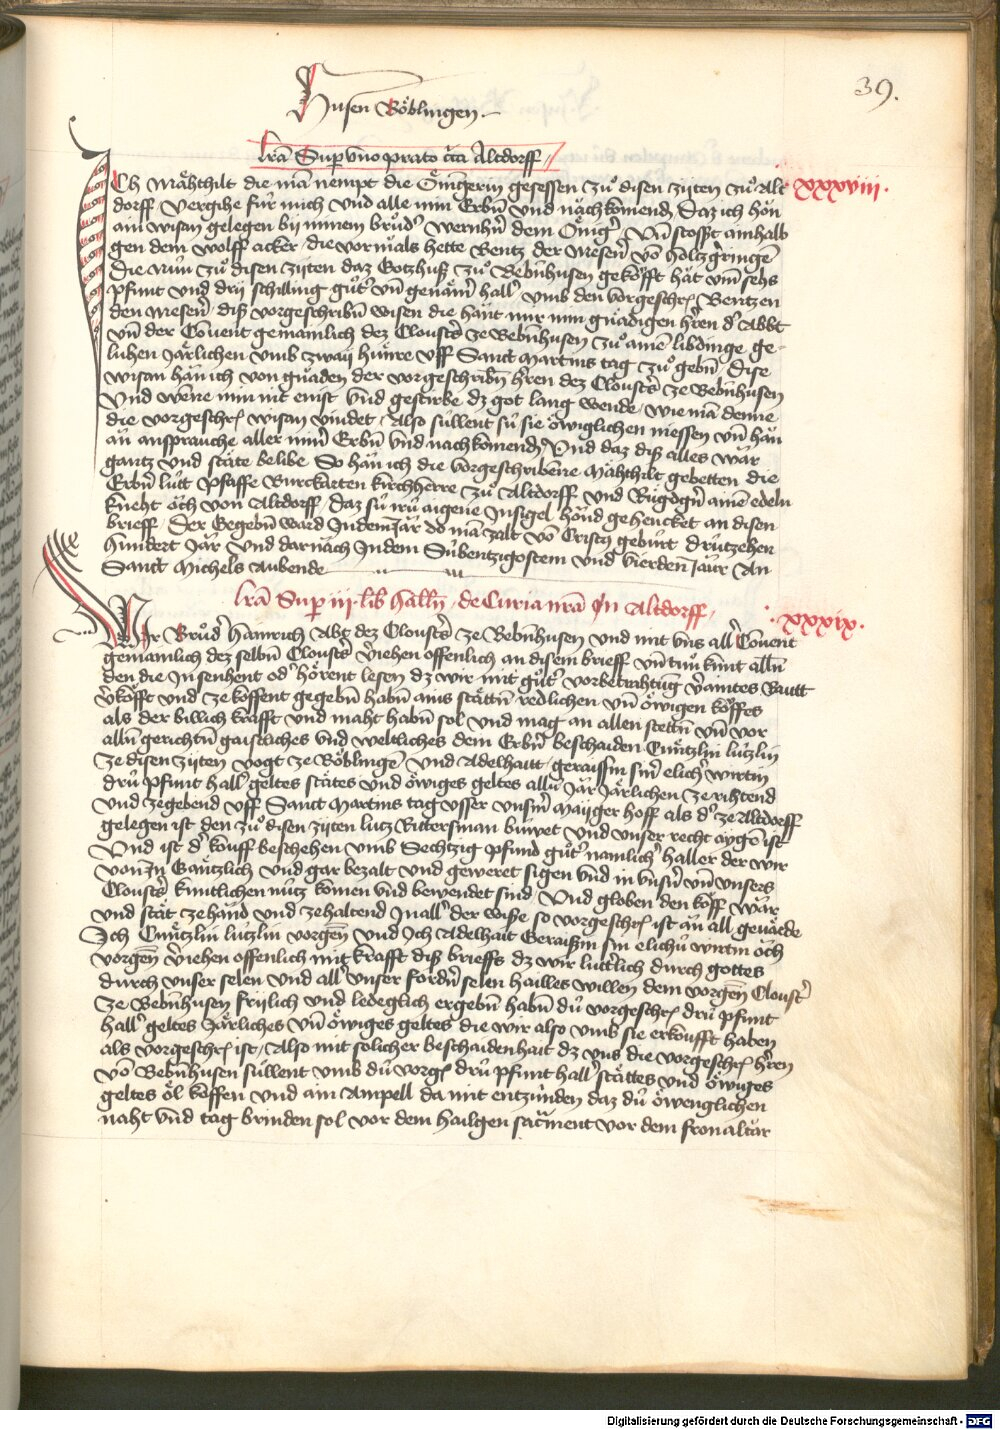 39.
Husen Böblingen
lrã Sup vno prato circa Altdorff
xxxviii.
Ich Mähthilt die mã nempt die Öningerin gesessen zů disen zijten zů Alt
dorff / vergihe für mich vnd alle min Erbñ vnd nächkomend, Daz ich hön
ain wisan gelegen bij minem brůdr wernhñ dem Önigr, vñ stosßt ainhalb
gen dem wolff acker, die vormäls hette Bentz der Mesenr vö Holtzgeringẽ
die nün zů disen zijten daz Gotzhuß zů Bebñhusen geköfft hät vm̃ sehs
pfunt vnd drij schilling gůtr vñ genämr hallr vmb den vorgeschrj Bentzen
den Mesenr, diß vorgeschribñ wisen die hänt mir min gnädigen hren dr Abbt
vñ der Conuent gemainlich dez Closters ze Bebñhusen zů aine libdinge ge-
luhen Järlichen vmb zwaij hünre vff Sanct Martins tag zů gebñ, Dise
wisan hän ich von gnaden der vorgeschribñ hren dez Clousters ze Bebñhusen
Vnd wẽne min nit enist vnd gestirbe dz got lang wende, wie mã denne
die vorgeschrj wisan vindet, Also süllent sü sie öwiglichen niessen vñ hän
än ansprauche aller minr Erbñ vnd nachkomend, Vnd daz diß alles wär
gantz vnd stäte belibe So hän ich die vorgeschribẽne Mähthilt gebetten die
Erbñ lütt pfaffe Burckarten kirchherre zů Altdorff vnd Rügdgr aine edeln
kneht öch von Altdorff, daz sü irü aigene Insigel hönd gehencket an disen
brieff, Der Gegebñ ward Indem Jär do mã zalt vö Cristz gebürt drützehen
hundert Jär vnd darnäch Indem Sübentzigostem vnd vierden Jaur An
Sanct Michels Aubende
lrã Sup iij lib hallr, de Curia nrã In Altdorff,
xxxix.
Wir Brůdr Hainrich Abt dez Clousters ze Bebñhusen vnd mit vns allr Conuent
gemainlich dez selbñ Clousters veriehen offenlich an disem brieff vñ tuw kunt allñ
den die In senhent odr hörent lesen dz wir mit gůtr vorbetrahtũg veraintes Rautt
verköfft vnd ze köffent gegebñ habñ ains stättñ redlichen vñ öwigen köffes
als der billich krafft vnd maht habñ sol vnd mag an allen stettñ vñ vor
allñ gerichtñ gaistliches vnd weltliches dem Erbñ beschaiden Cüntzlin lützlin
ze disen zijten vogt ze Böblingẽ, vnd Adelhaitt geraissin sinr elichr wirtin
drü pfunt hallr geltes stätes vnd öwiges geltes allü Jär Järlichen ze rihtend
vnd zegebend vff Sanct Martins tag vsser vnsrm Maijger hoff als dr ze Altdorff
gelegen ist den zů disen zijten lutz Rittersman buwet vnd vnser recht aygẽ ist
Vnd ist dr kouff beschehen vmb Sechtzig pfund gůtr namlichr haller der wir
von In Gäntzlich vnd gar bezalt vnd geweret sigen vnd in vnsrn vñ vnsers
Clousters kuntlichen nütz komen vnd bewendet sind, Vnd globen den köff wär
vnd stät ze händ vnd zehaltend In allr der wiße so vorgeschrj ist än all geuärde
Ich Cüntzlin lützlin vorgen vnd Ich Adelhait Geraißin sin elichü wirtin öch
vorgen veriehen offenlich mit krafft diß brieffs dz wir lutterlich durch gottes
durch vnser selen vnd allr vnser fordrn selen hailles willen dem vorgen Cloustr
ze Bebñhusen frijlich vnd ledeglich ergebñ habñ dü vorgeschrj drü pfunt
hallr geltes Järliches vñ öwiges geltes die wir also vmb sie erkoufft haben
als vorgeschrj ist, Also mit solicher beschaidenhait dz vns die vorgeschrj hren
vö Bebñhusen süllent vmb dü vorgj drü pfunt hallr stättes vnd öwiges
geltes öl köffen vnd ain Ampell da mit entzünden daz dü öwenglichen
naht vnd tag brinden sol vor dem hailgen sacrment vor dem fronaltär
Digitalisierung gefördert durch die Deutsche Forschungsgemeinschaft - DFG